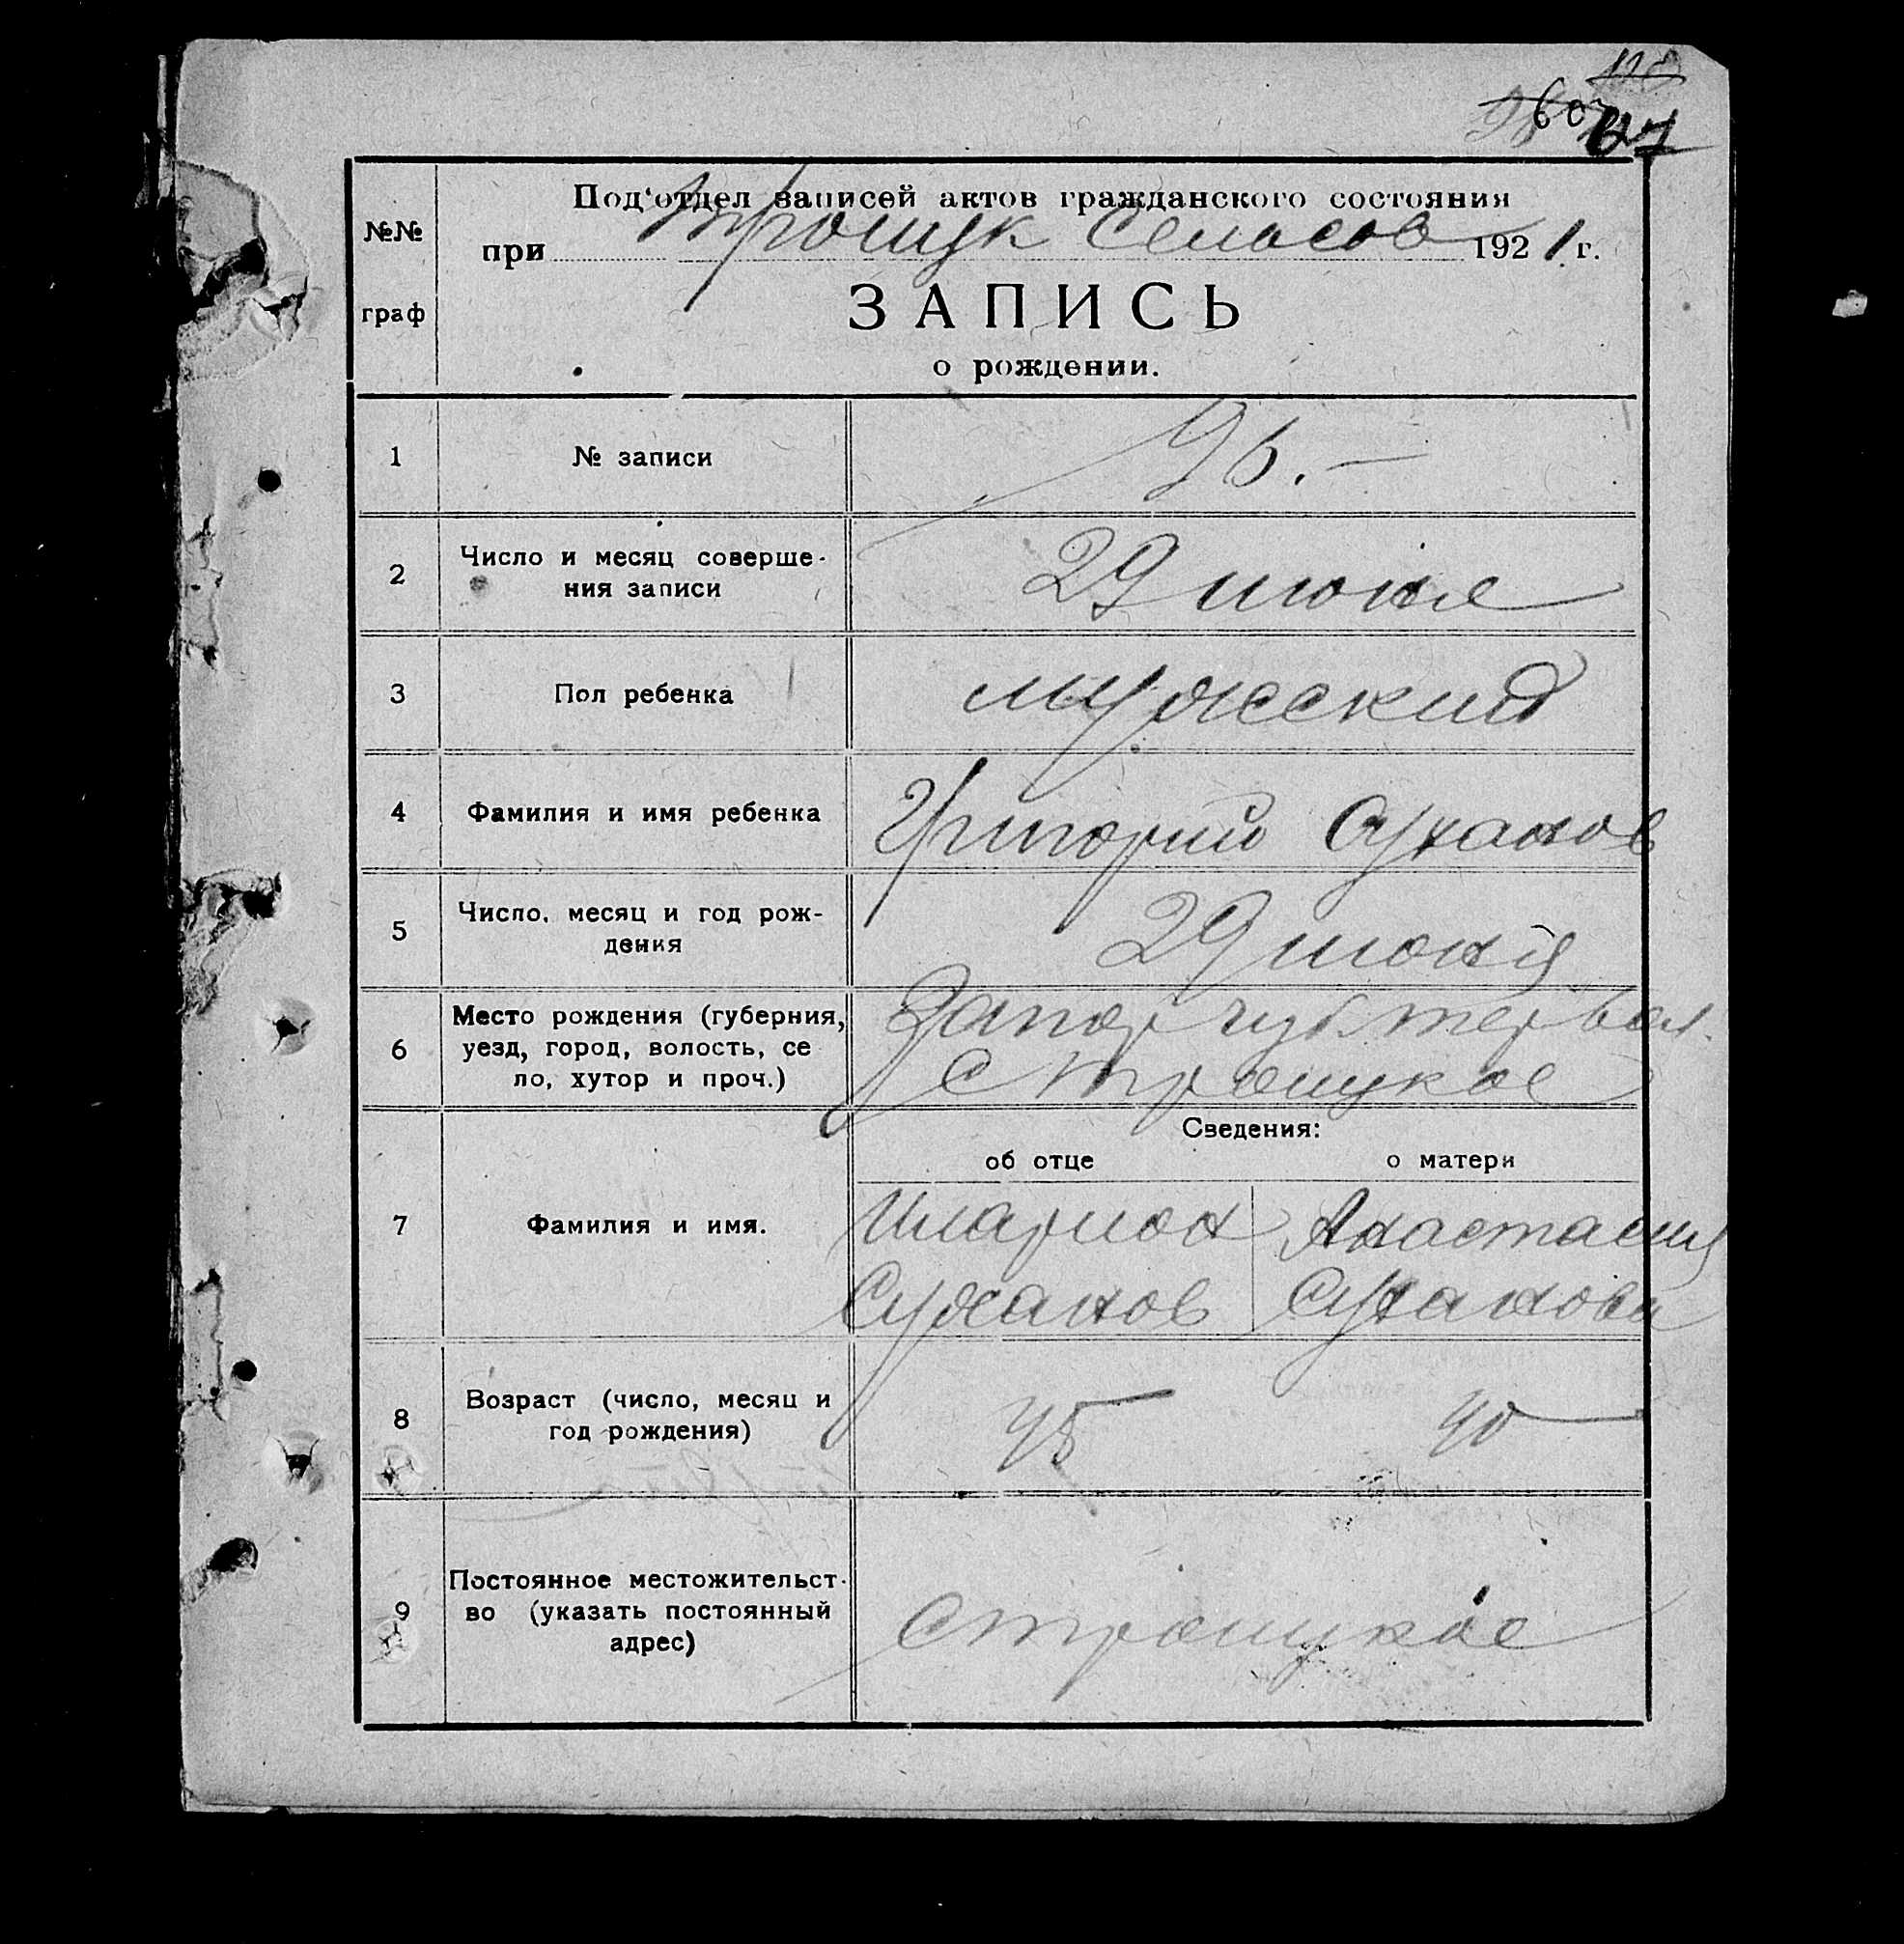 67
Под'отдел записей актов гражданского состояния
№№
при Троицк 1921 г.
граф
ЗАПИСЬ
о рождении.
1 № записи 96.—
2 Число и месяц соверше-
ния записи 29 июня
3 Пол ребенка мужеский
4 Фамилия и имя ребенка Григорий Суханов
5 Число, месяц и год рож-
дения 29 июня
6 Место рождения (губерния, Запор губ вол.
уезд, город, волость, се
ло, хутор и проч.) С Троицкое
Сведения:
об отце о матери
7 Фамилия и имя. Иларион Анастасия
Суханов Суханова
8 Возраст (число, месяц и
год рождения) 45 40
9 Постоянное местожительст-
во (указать постоянный С Троицкое
адрес)